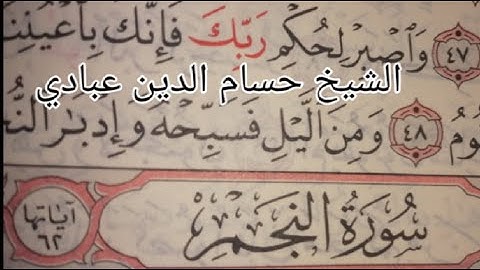 ٤٧ وَٱصْبِرْ لِحُكْمِ رَبِّكَ فَإِنَّكَ بِأَعْيُنِنَ
الشيخ حسام الدين عبادي
ومُ ٤٨ وَمِنَ ٱلَّيْلِ فَسَبِّحْهُ وَإِدْبَٰرَ ٱلنُّج
سُورَةُ النَّجْمِ
آياتها
٦٢